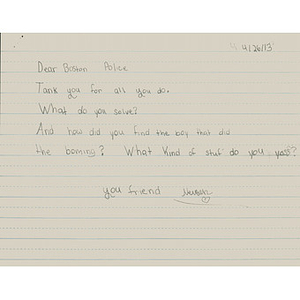 4/26/13
Dear Boston Police
Tank you for all you do.
What do you solve?
And how did you find the boy that did
the boming? What kind of stuf do you
you friend